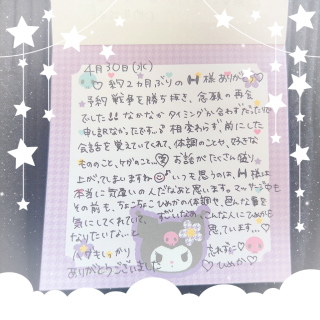 4月30日(水)
♡約2ヵ月ぶりの H様ありがとう♡
予約戦争を勝ち抜き、念願の再会
でした!! なかなかタイミングが合わずだったので
申し訳なかったです。相変わらず、前にした
会話を覚えてくれてて、体調のことや、好きな
もののこと、ケガのこと、お話がたくさん盛り
上がってしまいますね いつも思うのは、H様は
本当に気遣いの人だなぁと思います。マッサージ中も
その前も、ちょこちょこひめかの体調や、色んな事を
気にしてくれていて、すごいなぁ、こんな人にひめかも
なりたいな、と 思っています…♡
ハサもしっかり 忘れずに♡
ありがとうございました ♡ひめか♡